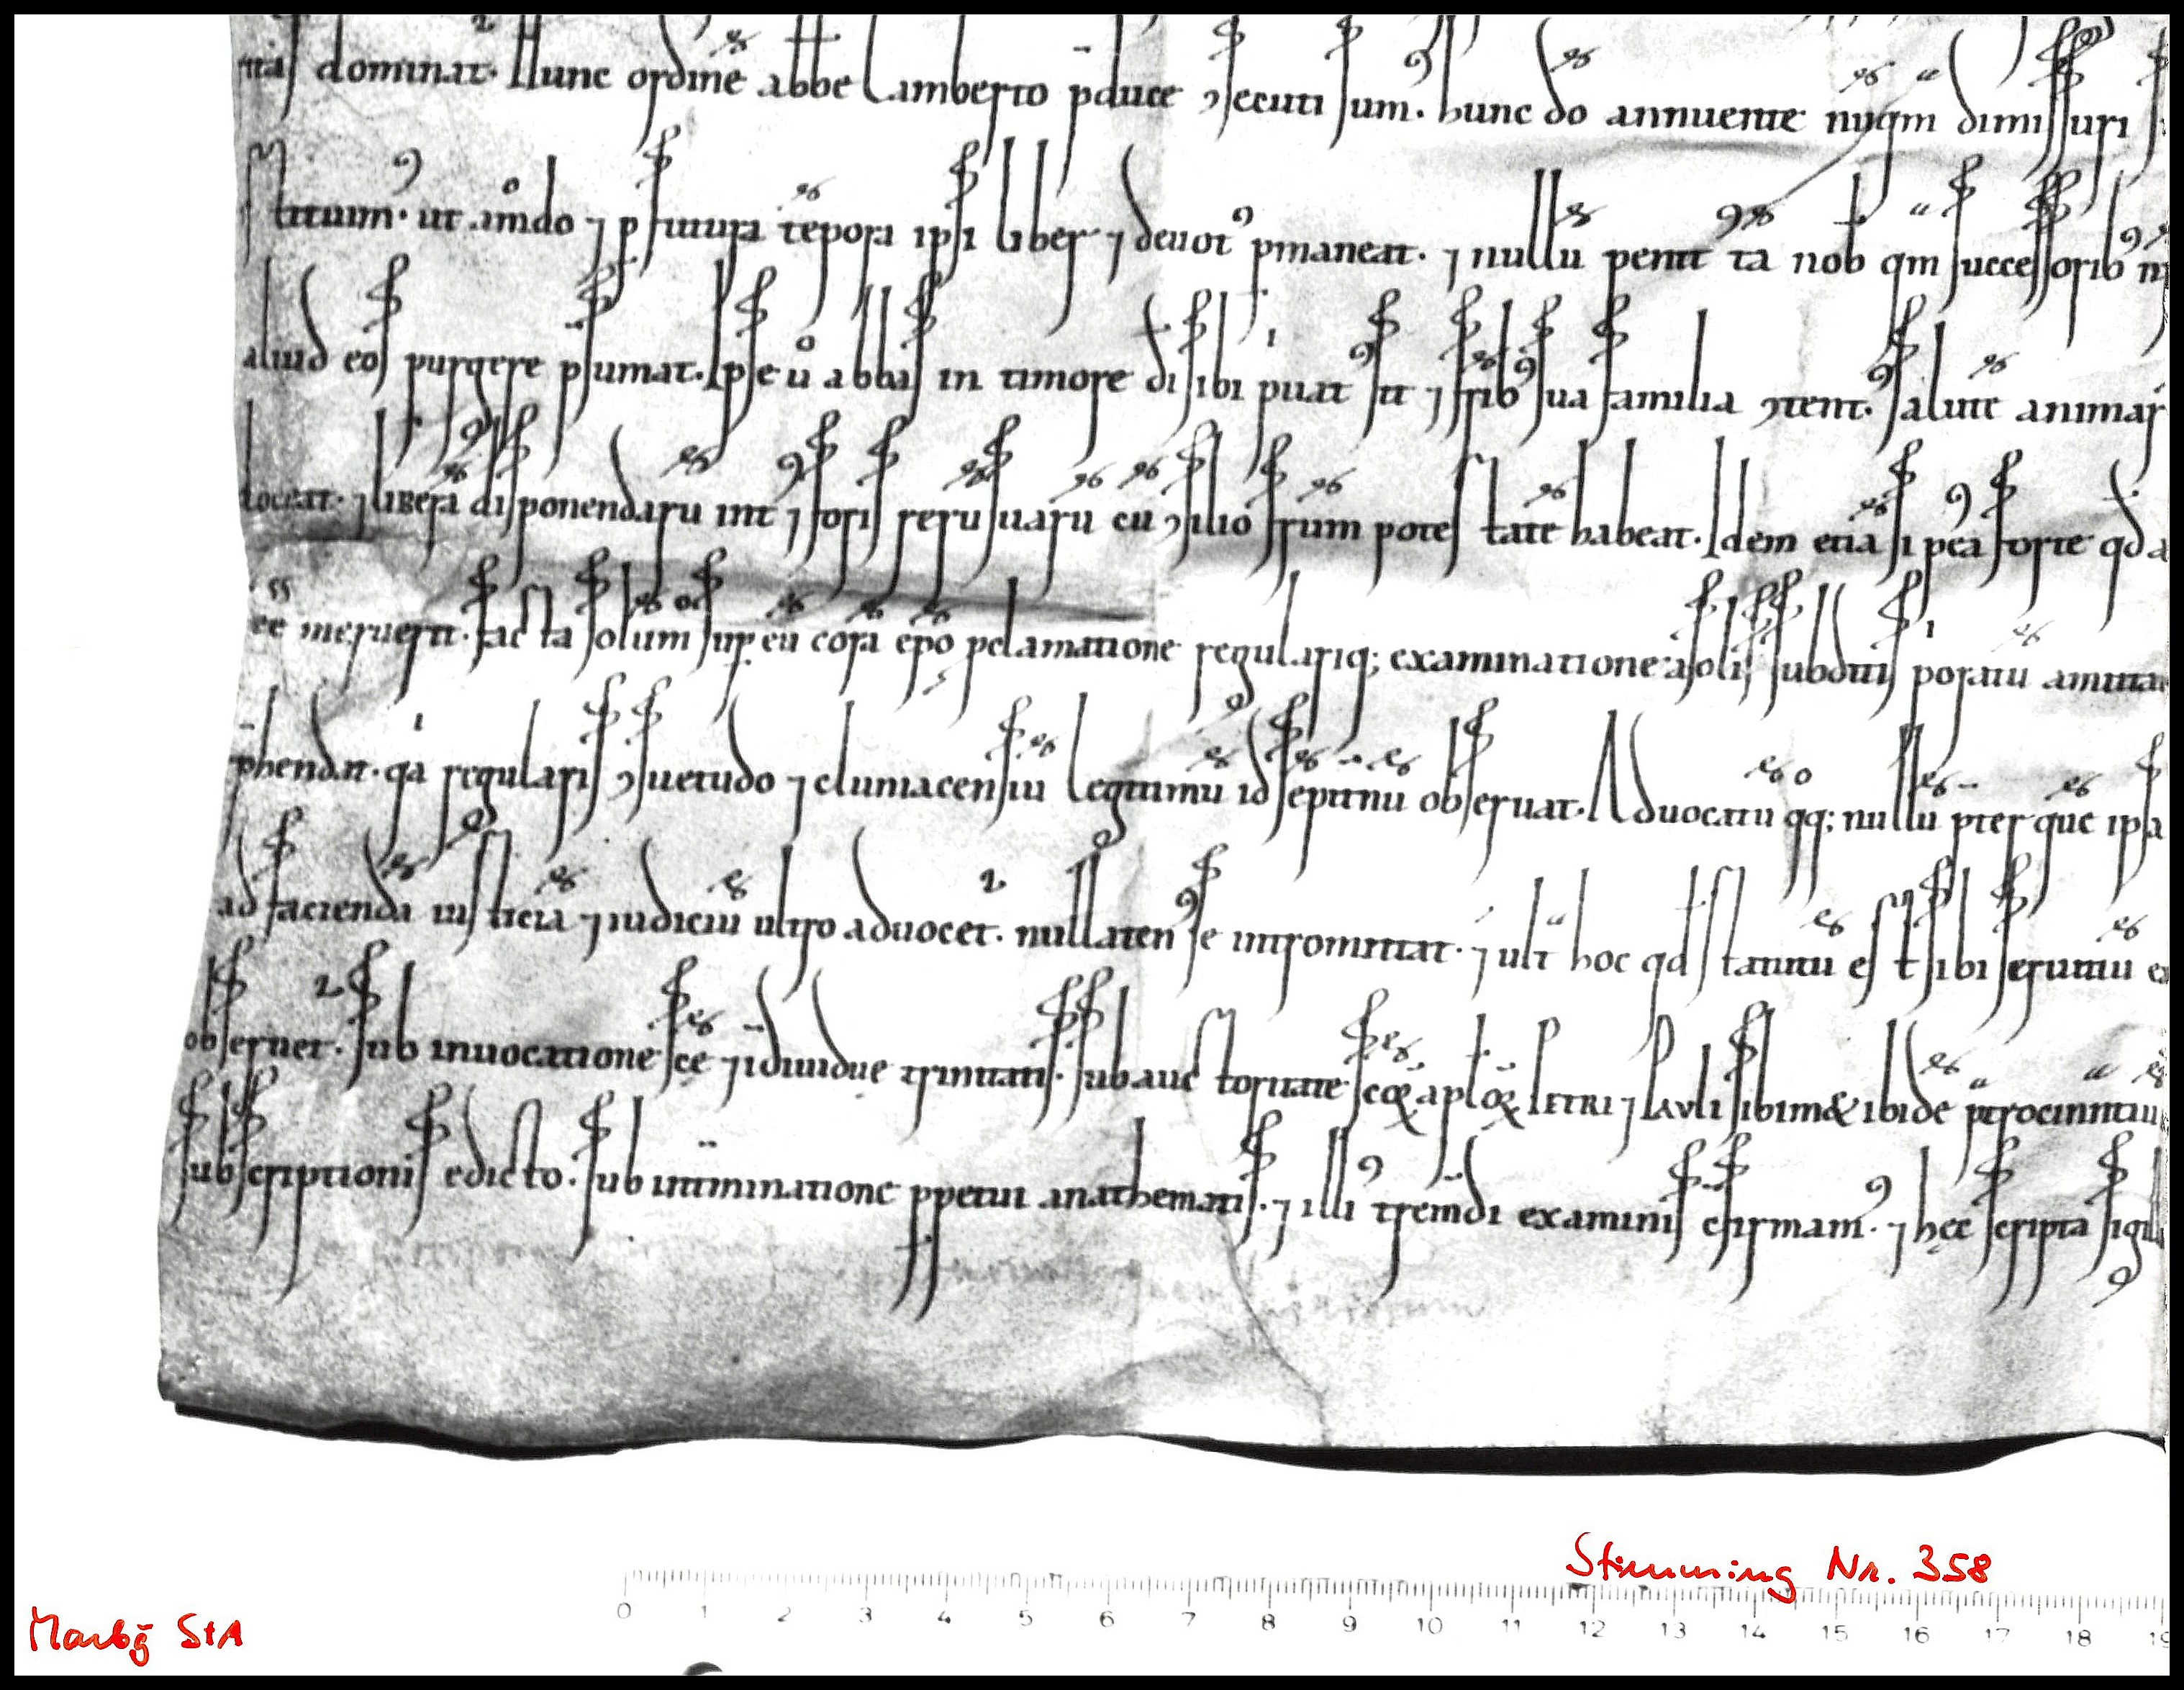 dominat͛. Hunc ordinē abbe Lamberto p̄duce ꝯsecuti sum᾽. hunc dō annuente nūqͣm dimissuri
stituim᾽. ut am̊do ⁊ p futura tēpora ipsi liber ⁊ deuot᾽ pmaneat. ⁊ nullū penit᾽ tā nob qͣm successorib᾽
aliud eos purgere p̄sumat. Ipse ů abbas in timore di sibi pͥuat᾽ sit ⁊ frīb᾽ sua familia ꝯtent᾽. salutē animaꝝ
doceat. ⁊ liberā disponendarū int᾽ ⁊ foris rerū suarū cū ꝯsilio frūm potestatē habeat. Idem etiā si pc̄a forte qd
eē meruerit. facta solum sup eū corā ep̄o pclamatione regulariq; examinatione: a solis subditis pͥoratū amittat
p̄hendit. qͥa regularis ꝯsuetudo ⁊ cluniacensiū legitimū id sepīnū obseruat. Aduocatū qͦq; nullū p̄ter quē ipsa
ad faciendā iusticiā ⁊ iudiciū ultro aduocet. nullaten᾽ se intromittat. ⁊ ult hoc qd statutū est sibi seruitiū
obseruet͛. Sub inuocatione scē ⁊ īdiuidue trinitatis. sub auctoritate scōꝝ aplōꝝ PETRI ⁊ PAVLI sibim& ibidē pͣtrociniͣtiū
subscriptionis edicto. sub intīminatione ppetui anathematis. ⁊ illi᾽ trem̄di examinis cf̄irmam᾽. ⁊ hec scripta sigill
Stimming Nr. 358
Marbg̃ StA
0 1 2 3 4 5 6 7 8 9 10 11 12 13 14 15 16 17 18 19